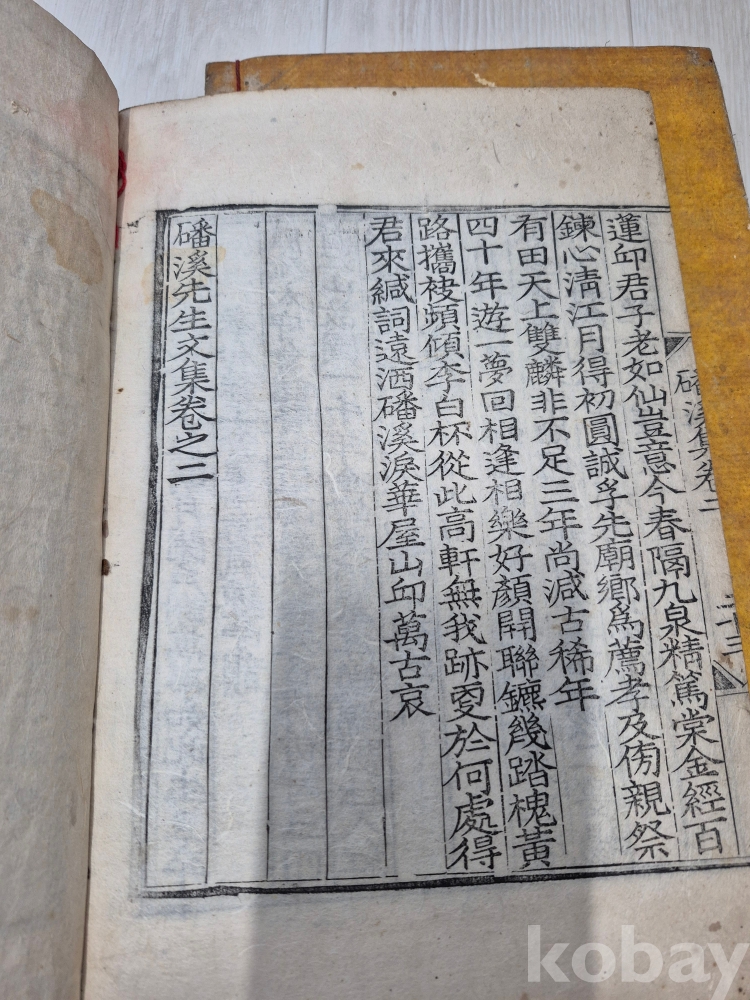 磻溪集卷二
二十三
蓮卬君子老如仙豈意今春隔九泉精篤棠金經百
鍊心淸江月得初圓誠孚先廟鄉爲薦孝及傍親祭
有田天上雙麟非不足三年尚减古稀年
四十年遊一夢回相逢相樂好顏開聯鑣幾踏槐黃
路攜被頻傾李白杯從此高軒無我跡更於何處得
君來緘詞遠洒磻溪淚華屋山卬萬古哀
磻溪先生文集卷之二
kobay